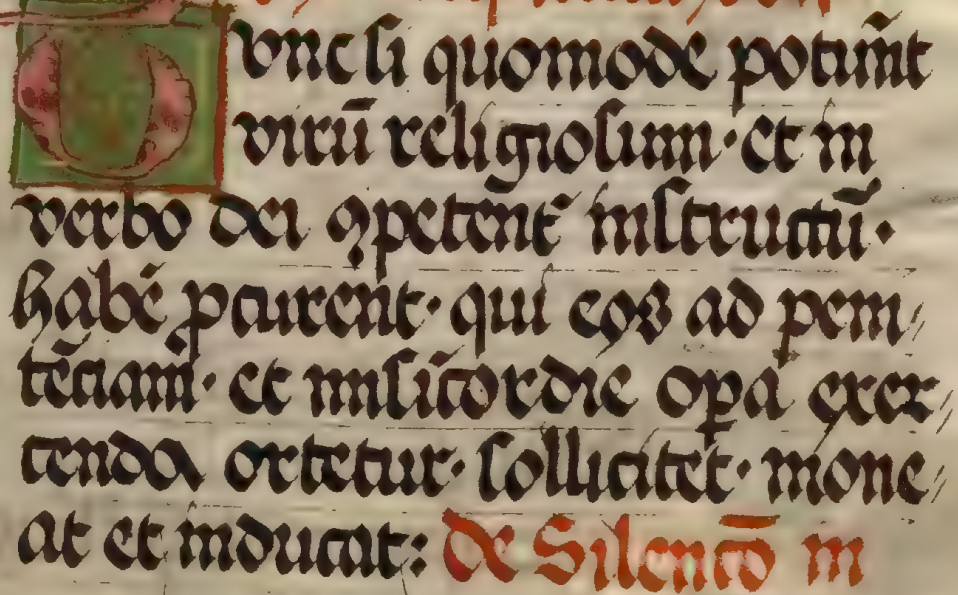 Tvnc si quomode potūnt
virū religiosum · et in
verbo dei ꝯpetent᷑ instructū ·
habē pcurent · qui eos ad peni/
tēciam · et miſicordie opa exer/
cenda ortetur · sollicitet · mone/
at et inducat : de Silencō in